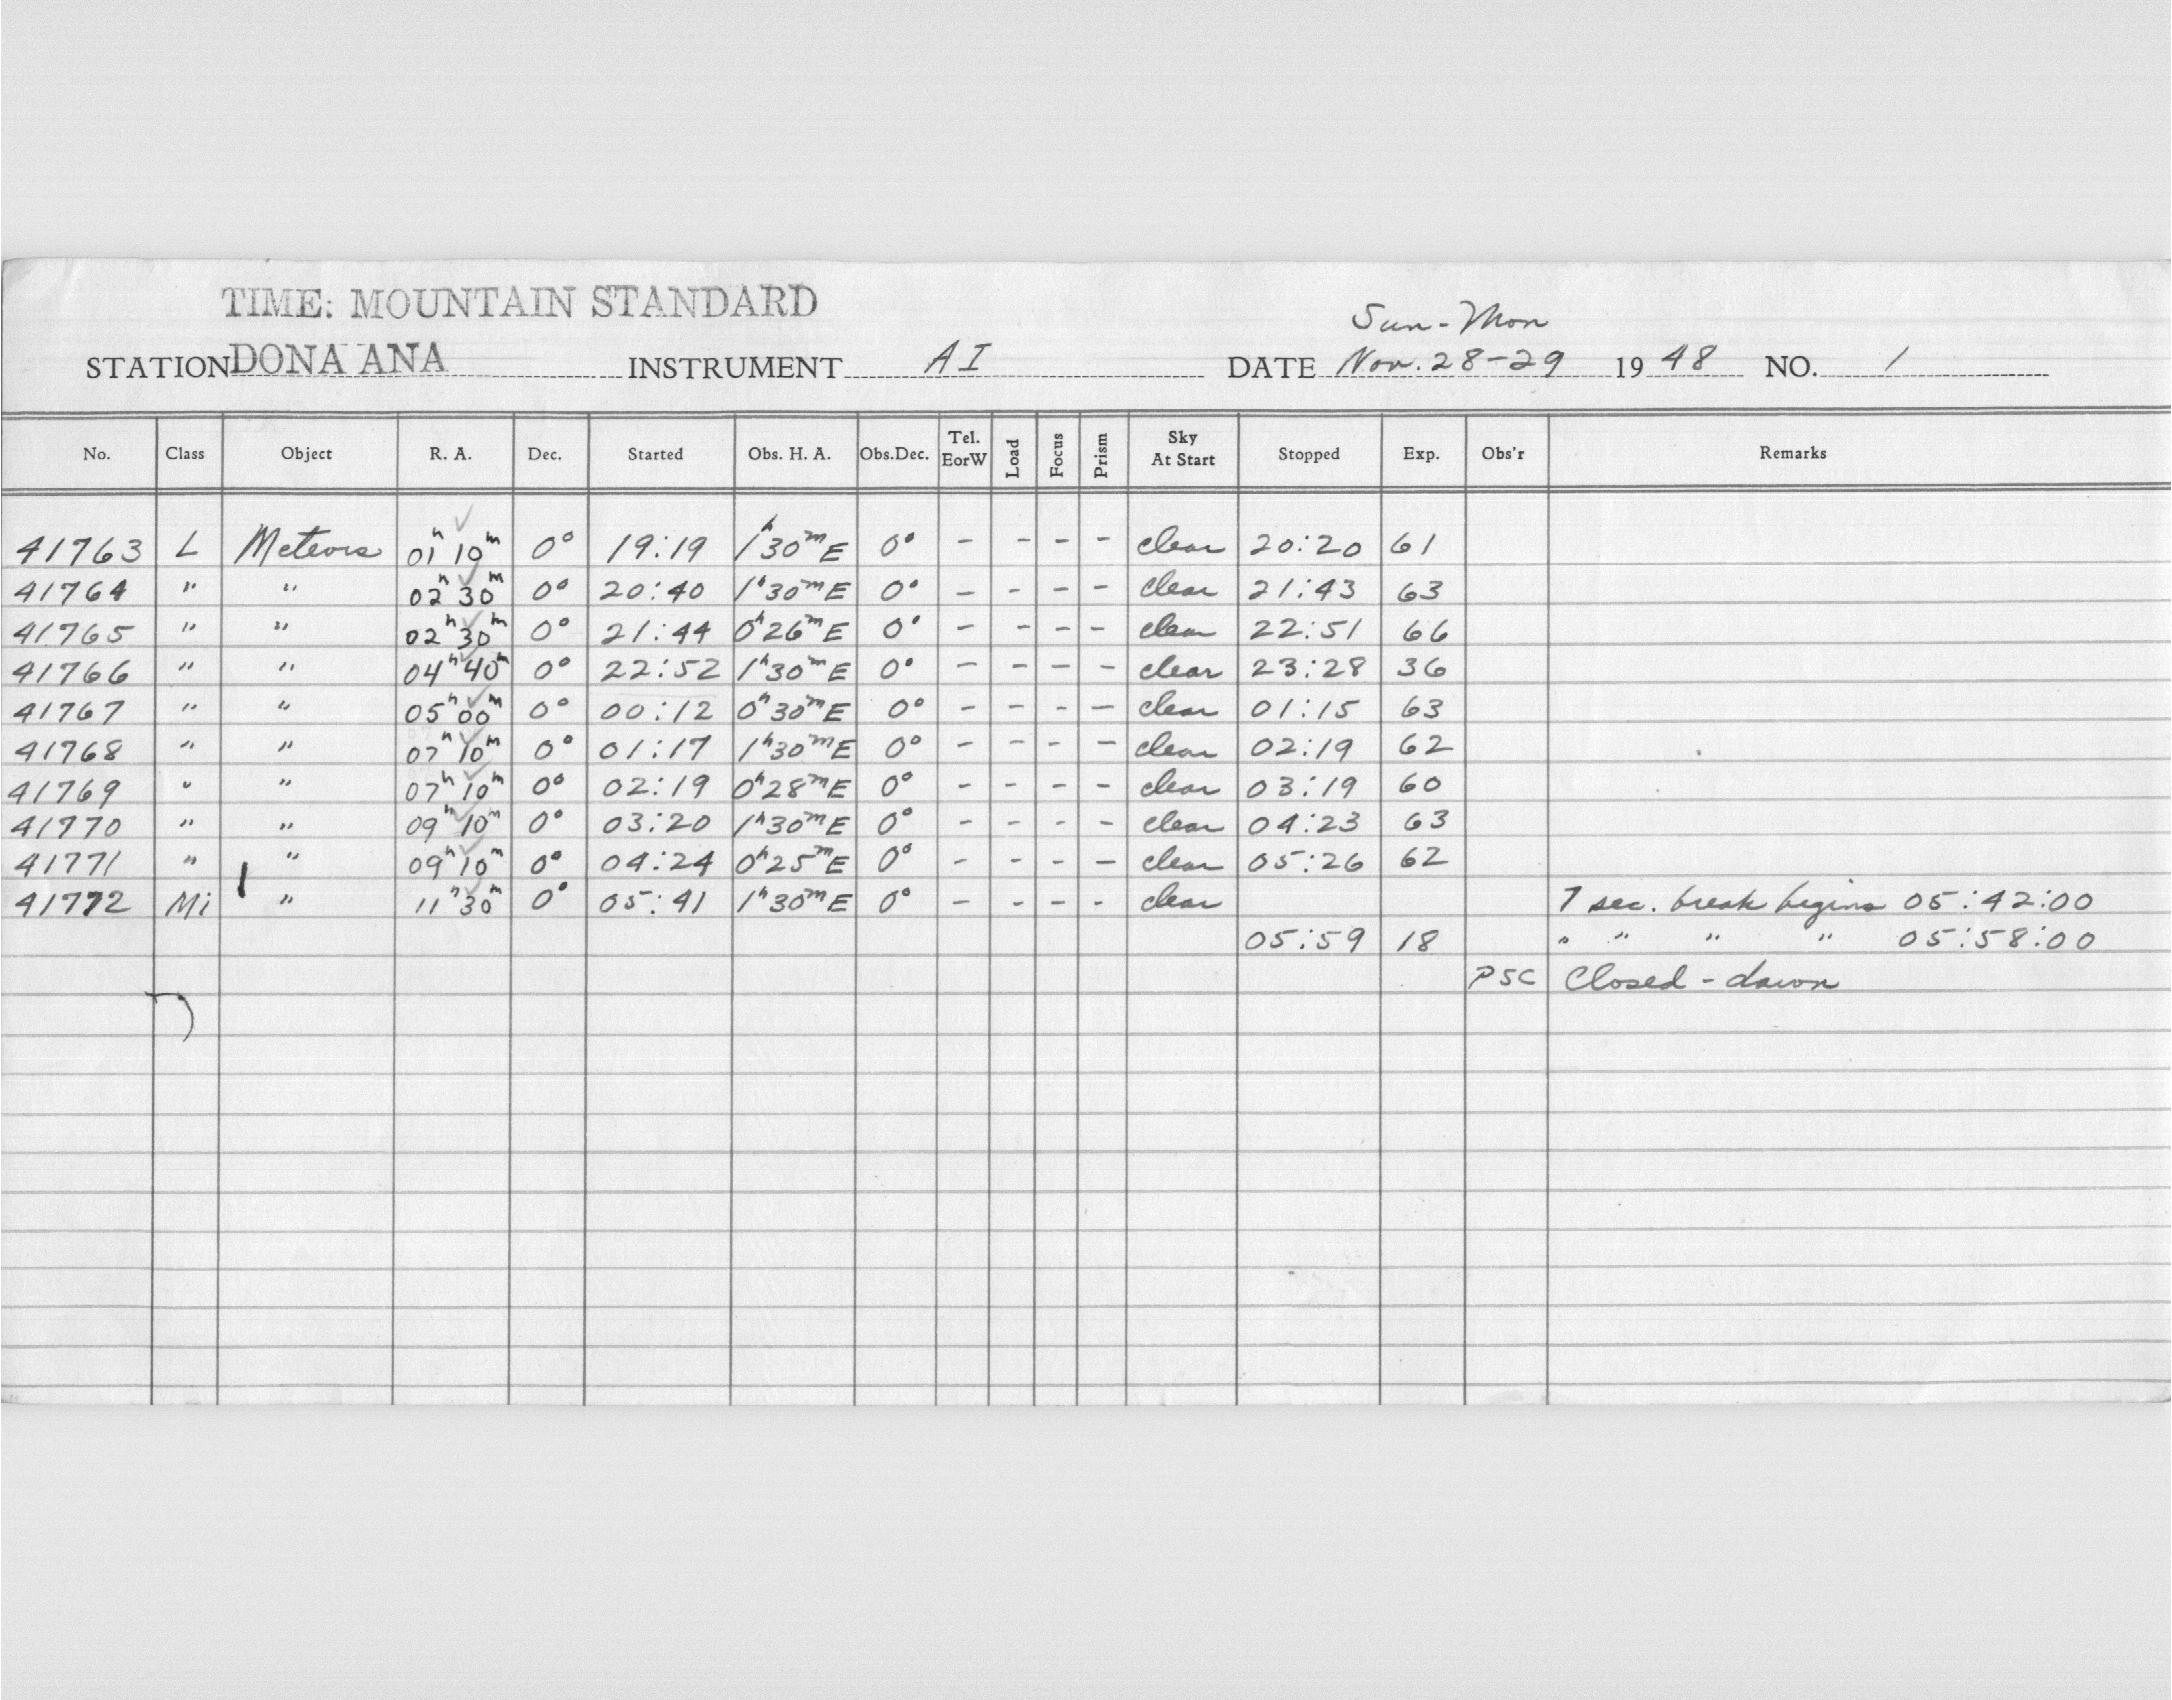 TIME: MOUNTAIN STANDARD
Sun-Mon
STATION DONA ANA INSTRUMENT AI DATE Nov. 28-29 1948 NO. 1
No. Class Object R. A. Dec. Started Obs. H. A. Obs.Dec. Tel. EorW Load Focus Prism Sky At Start Stopped Exp. Obs'r Remarks
41763 L Meteors 01ʰ10ᵐ 0° 19:19 1ʰ30ᵐE 0° - - - - clear 20:20 61
41764 " " 02ʰ30ᵐ 0° 20:40 1ʰ30ᵐE 0° - - - - clear 21:43 63
41765 " " 02ʰ30ᵐ 0° 21:44 0ʰ26ᵐE 0° - - - - clear 22:51 66
41766 " " 04ʰ40ᵐ 0° 22:52 1ʰ30ᵐE 0° - - - - clear 23:28 36
41767 " " 05ʰ00ᵐ 0° 00:12 0ʰ30ᵐE 0° - - - - clear 01:15 63
41768 " " 07ʰ10ᵐ 0° 01:17 1ʰ30ᵐE 0° - - - - clear 02:19 62
41769 " " 07ʰ10ᵐ 0° 02:19 0ʰ28ᵐE 0° - - - - clear 03:19 60
41770 " " 09ʰ10ᵐ 0° 03:20 1ʰ30ᵐE 0° - - - - clear 04:23 63
41771 " " 09ʰ10ᵐ 0° 04:24 0ʰ25ᵐE 0° - - - - clear 05:26 62
41772 Mi " 11ʰ30ᵐ 0° 05:41 1ʰ30ᵐE 0° - - - - clear 7 sec. break begins 05:42:00
05:59 18 " " " " 05:58:00
PSC Closed - dawn